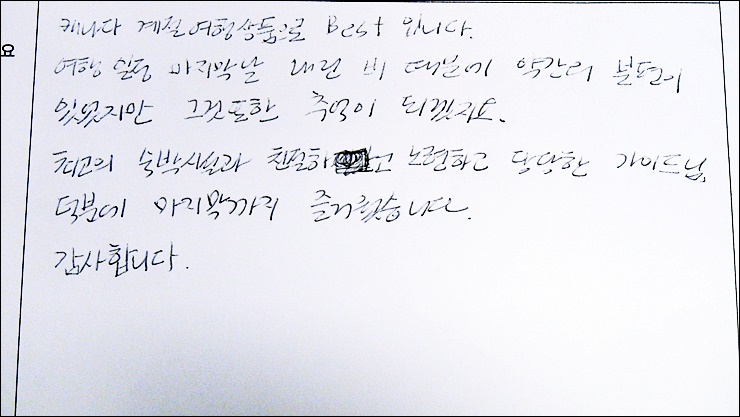 캐나다 계절여행상품으로 Best 입니다.
여행 일정 마지막날 내린 비 때문에 약간의 불편이
있었지만 그것또한 추억이 되겠지요.
최고의 숙박시설과 친절하고 노련하고 당당한 가이드님,
덕분에 마지막까지 즐거웠습니다.
감사합니다.
요